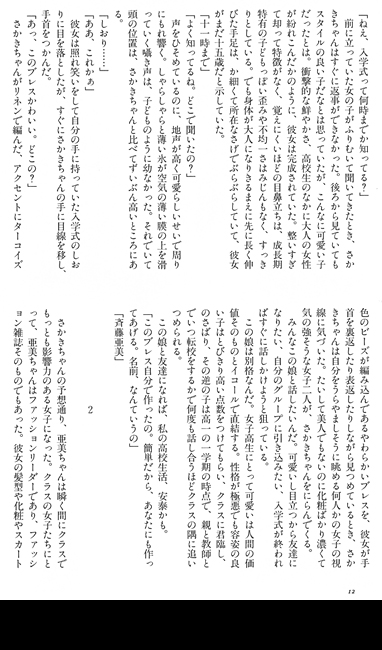 「ねえ、入学式って何時までか知ってる？」
前に立っていた女の子がふりむいて聞いてきたとき、さか
きちゃんはすぐに返事ができなかった。後ろから見ていても
スタイルの良い子だなとは思っていたが、こんなに可愛い子
だったとは。衝撃的な鮮やかさ、高校生のなかに大人の女性
が紛れこんだかのように、彼女は完成されていた。整いすぎ
て却って特徴がなく、覚えにくいほどの目鼻立ちは、成長期
特有の子どもっぽい歪みや不均一さはみじんもなく、すっき
りとしている。でも身体が大人になりきるまえに先に長く伸
びた手足は、か細くて所在なさげでぶらぶらしていて、彼女
がまだ十五歳だと示していた。
「十一時まで」
「よく知ってるね。どこで聞いたの？」
声をひそめているのに、地声が高く可愛らしいせいで周り
にもれ響く。しゃらしゃらと薄い氷が空気の薄い膜の上を滑
っていく囁き声は、子どものように幼なかった。それでいて
頭の位置は、さかきちゃんと比べてずいぶん高いところにあ
る。
「しおり……」
「ああ、これかあ」
彼女は照れ笑いをして自分の手に持っていた入学式のしお
りに目を落としたが、すぐにさかきちゃんの手に目線を移し、
手首をつかんだ。
「あっ、このブレスかわいい。どこの？」
さかきちゃんがリネンで編んだ、アクセントにターコイズ
色のビーズが編み込んであるやわらかいブレスを、彼女が手
首を裏返したり表返したりしながら見つめているとき、さか
きちゃんは自分をうらやましそうに眺める何人かの女子の視
線に気づいた。たいして美人でもないのに化粧ばかり濃くて
気の強そうな女子二人が、さかきちゃんをにらんでくる。
みんなこの娘と話したいんだ。可愛いし目立つから友達に
なりたい、自分のグループに引き込みたい、入学式が終われ
ばすぐに話しかけようと狙っている。
この娘は別格なんだ。女子高生にとって可愛いは人間の価
値そのものとイコールで直結する。性格が極悪でも容姿の良
い子はとびきり高い点数をつけてもらい、クラスに君臨し、
のさばり、その逆の子は高一の一学期の時点で、親と教師と
でいつ転校をするかで何度も話し合うほどクラスの隅に追い
つめられる。
この娘と友達になれば、私の高校生活、安泰かも。
「このブレス自分で作ったの。簡単だから、あなたにも作っ
てあげる。名前、なんていうの」
「斉藤亜美」
2
さかきちゃんの予想通り、亜美ちゃんは瞬く間にクラスで
もっとも影響力のある女子になった。クラスの女子たちにと
って、亜美ちゃんはファッションリーダーであり、ファッシ
ョン雑誌そのものでもあった。彼女の髪型や化粧やスカート
12